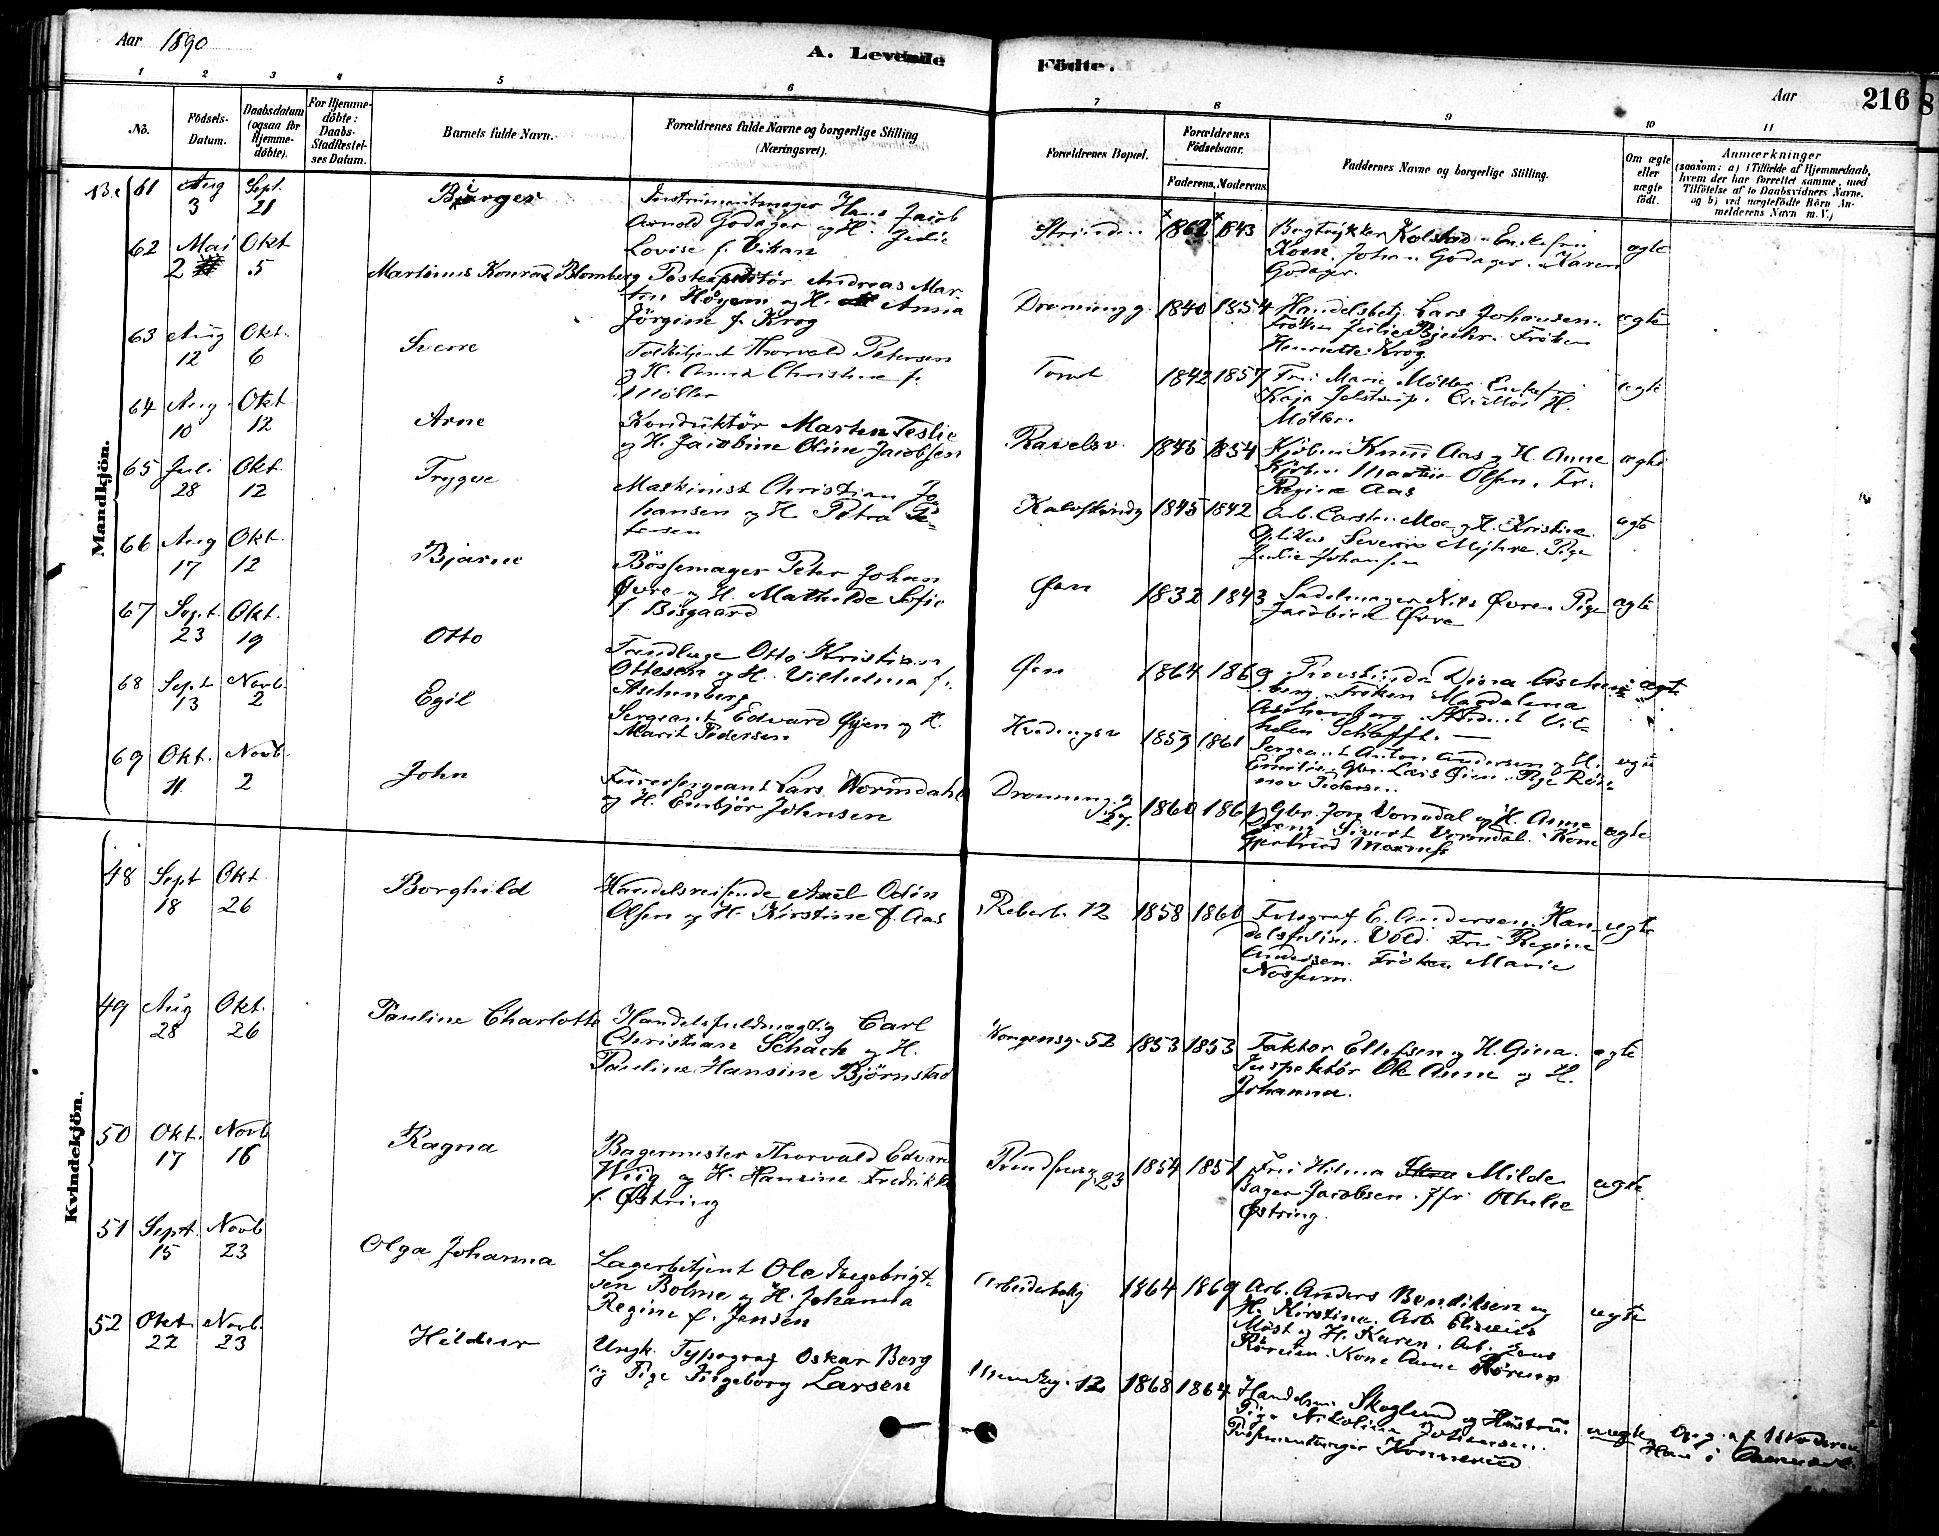 Aar 1890
A. Levende Födte.
Aar 216
1 2 3 4 5 6 7 8 9 10 11
No.
Födsels-Datum.
Daabsdatum (ogsaa for Hjemme-döbte).
For Hjemme-döbte: Daabs-Stadfæstel-ses Datum.
Barnets fulde Navn.
Forældrenes fulde Navne og borgerlige Stilling (Næringsvei).
Forældrenes Bopæl.
Forældrenes Födselsaar.
Faderens. Moderens.
Faddernes Navne og borgerlige Stilling.
Om ægte eller uægte födt.
Anmærkninger
(saasom: a) i Tilfælde af Hjemmedaab,
hvem der har forrettet samme, med
Tilföielse af to Daabsvidners Navne,
og b) ved uægtefödte Börn An-
melderens Navn m. V.)
Mandkjön.
61 Aug 3 Sept. 21 Birger
Instrumentmager Hans Jacob
Arnold Godager og H. Julie
Lovise f. Vikan
Strinden 1862 1843
Bogtrykker Kolstad Enkefru
Koen. Johan Godager. Karen
Godager.
ægte
62 Mai 2 Okt 5 Martinus Konrad Blomberg
Postexpeditør Andreas Mar-
tin Høyem og H. Anna
Jörgine f. Krog
Dronningg. 1840 1854
Handelsbetj. Lars Johansen.
Fröken Julie
Henriette Krog.
ægte
63 Aug 12 Okt. 6 Sverre
Toldbetjent Thorvald Petersen
og H. Anna Christine f.
Möller
Tomt 1842 1857
Fru Marie Möller Enkefru
Kaja Jelstrup. H.
Möller.
ægte
64 Aug. 10 Okt 12 Arne
Konduktör Morten Teslie
og H. Jacobine Oline Jacobsen
1845 1854
Kjöbm Knud Aas og H. Anne
Kjöbm Martin Olsen. Fr.
Regine Aas
ægte
65 Juli 28 Okt. 12 Trygve
Maskinist Christian Jo-
hansen og H Petra Pe-
tersen
Kalvskindg 1845 1842
Arb. Carsten Moe og H. Kristine
Severin Myhre. Pige
Julie Johansen
ægte
66 Aug 17 Okt. 12 Bjarne
Bössemager Peter Johan
Øvre og H. Mathilde Sofie
f. Bisgaard
Øen 1832 1843
Sadelmager Nils Øvre. Pige
Jacobine Øvre
ægte
67 Sept. 23 Okt. 19 Otto
Tandlæge Otto Kristian
Ottesen og H. Vilhelma f.
Aschenberg
Øen 1864 1869
Dina Aschen-
berg. Fröken Magdalena
Aschenberg. Student Vil-
helm Schefft.
ægte
68 Sept 13 Novb. 2 Egil
Sergeant Edvard Øyen og H.
Marit Pedersen
1859 1861
Sergeant Anton Andersen og H.
Emilie. Gbr. Lars Øien. Pige
Pedersen.
ægte
69 Okt. 11 Novb. 2 John
Furersergeant Lars Wormdahl
og H. Enbjör Johnsen
Dronning.g 27. 1860 1861
Gbr. Jon Vormdal og H. Anne
Sivert Vormdal. Kone
Gjertrud Moxness
ægte
Kvindekjön.
48 Sept 18 Okt. 26 Borghild
Handelsreisende Axel Odin
Olsen og H. Kirstine f. Aas
Reberb. 12 1858 1860
Fotograf E. Andersen. Han-
delsfuldm. Vold. Fru Regine
Andersen. Fröken Marie
Nossum.
ægte
49 Aug 28 Okt. 26 Pauline Charlotte
Handelsfuldmægtig Carl
Christian Schack og H.
Pauline Hansine Björnstad
Kongensg. 52 1853 1853
Faktor Ellefsen og H. Gina.
Inspektör Ole Aune og H.
Johanna.
ægte
50 Okt. 17 Novb 16 Ragna
Bagermester Thorvald Edvard
Wiig og H. Hansine Fredrikke
f. Østring
23 1854 1851
Fru Hilma Milde
Bager Jacobsen. Jfr. Othilie
Østring.
ægte
51 Sept. 15 Novb 23 Olga Johanna
Lagerbetjent Ole Ingebrigt-
sen Bolme og H. Johanna
Regine f. Jensen
1864 1869
Arb. Anders Bendiksen og
H. Kirstine. Arb.
Möst og H. Karen. Arb. Jens
Röreien. Kone Anne Röreien
ægte
52 Okt. 22 Novb. 23 Hildur
Ungk. Typograf Oskar Berg
og Pige Ingeborg Larsen
12 1868 1864
Handelsm. Skoglund og Hustru.
Pige Nikoline
uægte
Opg. af Moderen